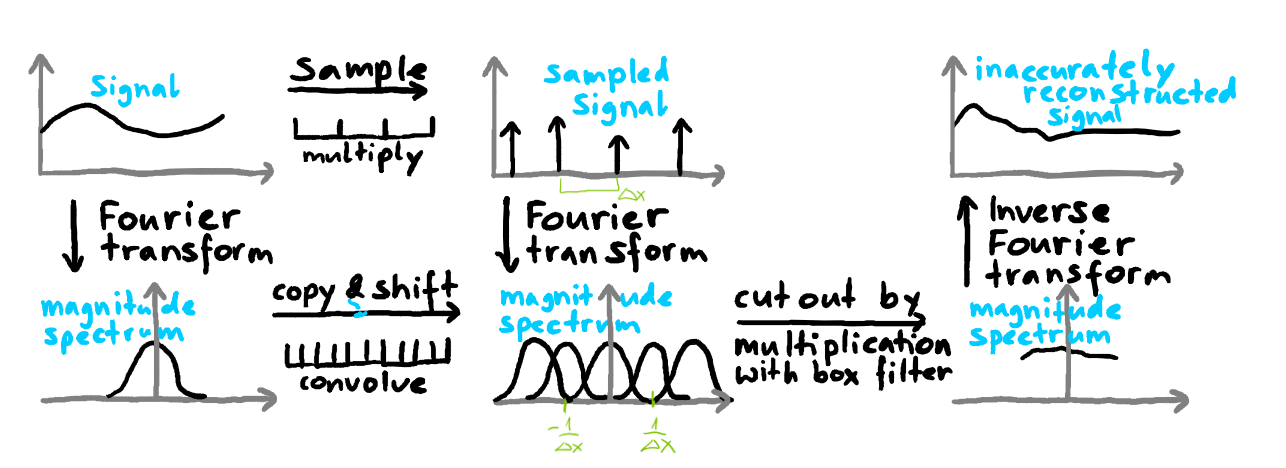 Signal
Sample
multiply
Sampled
Signal
Δx
inaccurately
reconstructed
signal
Fourier
transform
Fourier
transform
Inverse
Fourier
transform
magnitude
spectrum
copy & shift
convolve
magnitude
spectrum
-1/Δx
1/Δx
cut out by
multiplication
with box filter
magnitude
spectrum